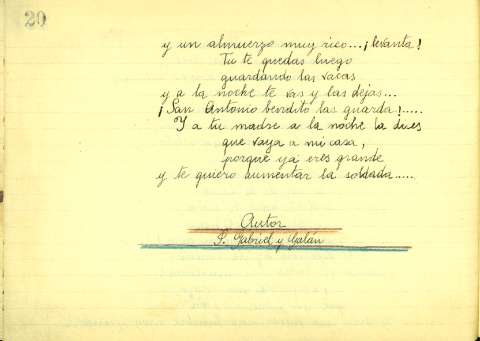 20
y un almuerzo muy rico...¡levanta!
Tu te quedas luego
guardando las vacas
y a la noche te vas y las dejas...
¡San Antonio bendito las guarda!.....
Y a tu madre a la noche la dices
que vaya a mi casa,
porque ya eres grande
y te quiero aumentar la soldada.....
Autor
S. Gabriel y Galán